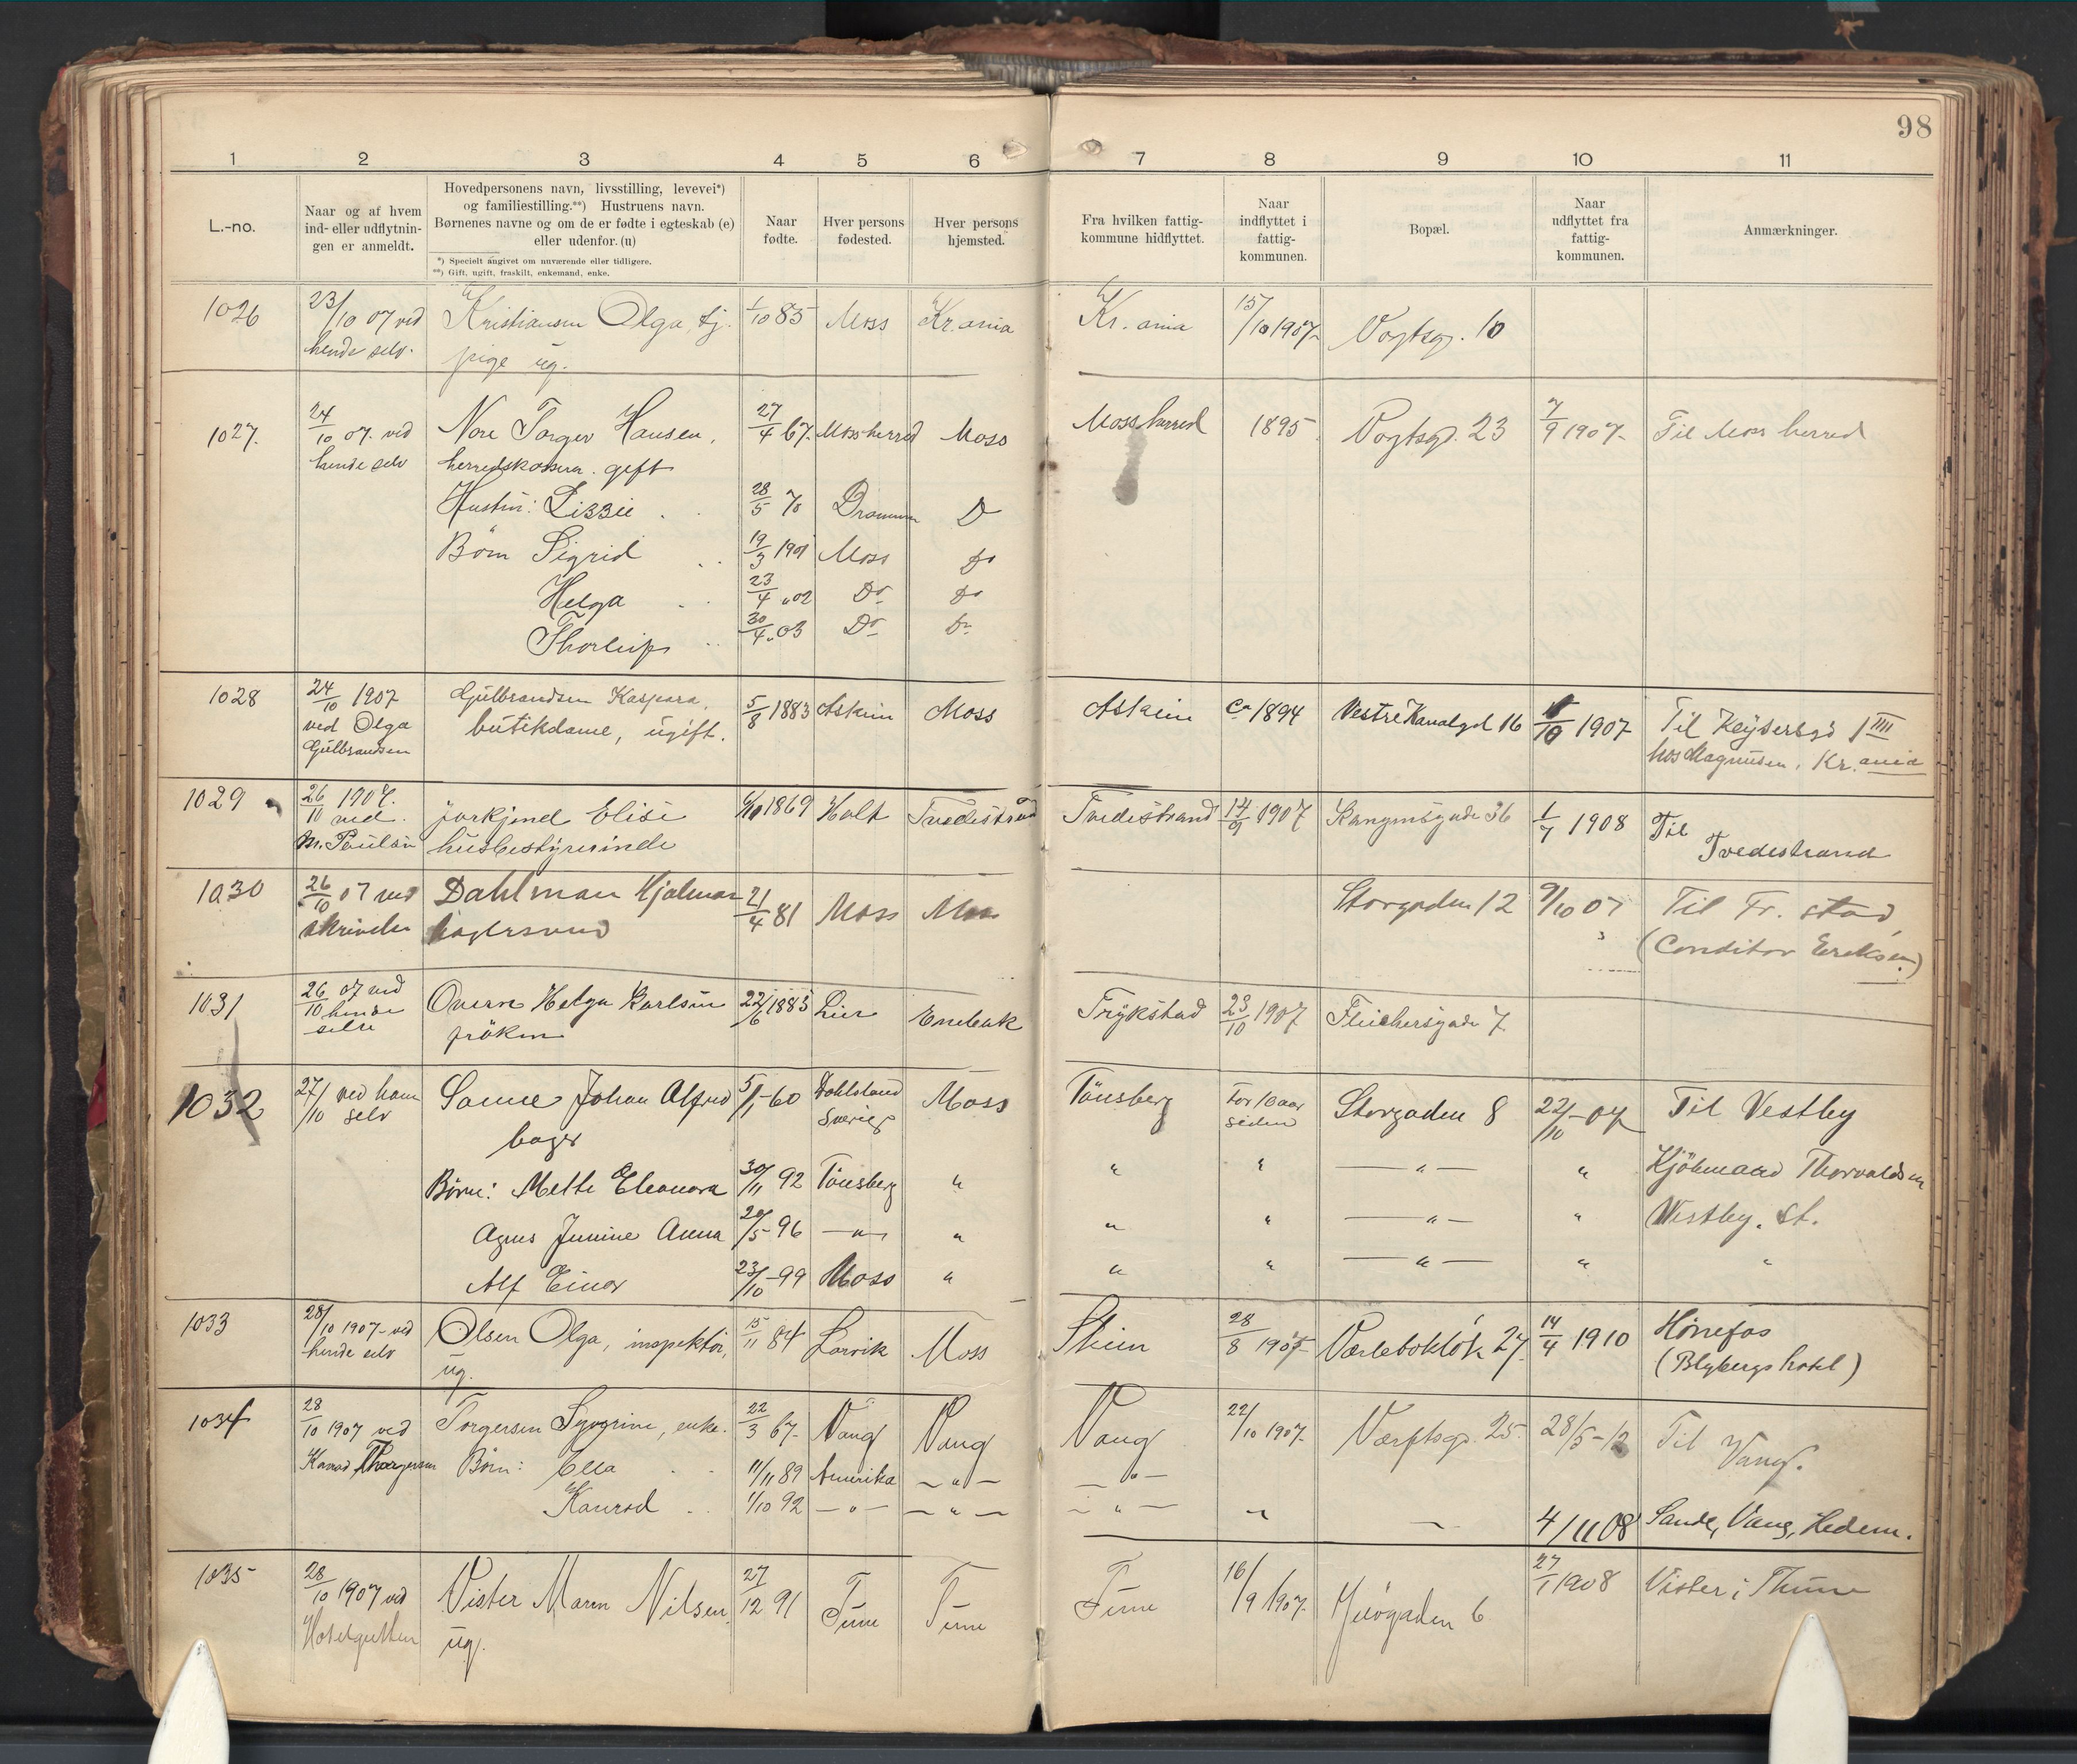 98
1 2 3 4 5 6 7 8 9 10 11
L.-no.
Naar og af hvem
ind- eller udflytnin-
gen er anmeldt.
Hovedpersonens navn, livsstilling, levevei*)
og familiestilling.**) Hustruens navn.
Børnenes navne og om de er fødte i egteskab (e)
eller udenfor. (u)
*) Specielt angivet om nuværende eller tidligere.
**) Gift, ugift, fraskilt, enkemand, enke.
Naar
fødte.
Hver persons
fødested.
Hver persons
hjemsted.
Fra hvilken fattig-
kommune hidflyttet.
Naar
indflyttet i
fattig-
kommunen.
Bopæl.
Naar
udflyttet fra
fattig-
kommunen.
Anmærkninger.
1026 23/10 07 ved Kristiansen Olga, tj. 1/10 85 Moss Kr.ania Kr.ania 15/10 1907 Vogtsg. 10
hende selv. pige ug.
1027. 24/10 07. ved Nore Torger Hansen, 27/4 67. Moss herred Moss Moss herred 1895 Vogtsgd. 23 7/9 1907 Til Moss herred
hende selv herredskasser. gift
Hustru: Lizzie 28/5 70 Drammen Do
Børn Sigrid 19/3 1901 Moss Do
Helga 23/4 "02 Do Do
Thorleif 30/4 "03 Do Do
1028 24/10 1907 Gulbrandsen Kaspara, 5/8 1883 Askim Moss Askim ca 1894 Vestre Kanalgd 16 /10 1907 Til Keysersgd 1 IIII
ved Olga butikdame, ugift. hos Magnusen, Kr.ania
Gulbrandsen
1029 26/10 1907. Elise 1869 Holt Tvedestrand Tvedestrand 14/9 1907 Kongensgade 36 1/7 1908 Til
ved M. Paulsen husbestyrerinde Tvedestrand
1030 26/10 07 ved Dahlman Hjalmar 21/4 81 Moss Moss Storgaden 12 9/10 07 Til Fr. stad
skrivelse bagersvend (Conditor Eriksen)
1031 26/10 07 ved Helga Karlsen 22/6 1885 Lier Enebak Trykstad 23/10 1907 Fleichersgade 7
hende selv frøken
1032 27/10 ved ham Sanne Johan Alfred 5/1-60 Dahlsland Moss Tønsberg For 10 aar Storgaden 8 22/10-07 Til Vestby
selv bager Sverige siden
Børn: Mette Eleonora 30/11 92 Tønsberg " " " —"— " Kjøbmand Thorvaldsen
Agnes Jensine Anna 20/5 96 —"— " " " —"— " Vestby. st.
Alf Einar 23/10-99 Moss " " " —"— " "
1033 28/10 1907 ved Olsen Olga, inspektør, 15/11 84 Larvik Moss Skien 28/8 1907 27 14/4 1910 Hønefos
hende selv ug. (Blybergs hotel)
1034 28/10 1907 ved Torgersen Syverine, enke. 22/3 67 Vang Vang Vang 22/10 1907. Værftsgd. 25. 28/5- Til Vang.
Konrad Thorgersen Børn: Ella 11/11 89 Amerika —"— —"—
Konrad 1/10 92 —"— —"— —"— " — 4/11 08 Sande, Vang, Hedem.
1035 28/10 1907 ved Vister Maren Nilsen, 27/12 91 Tune Tune Tune 16/9 1907. Jeløgaden 6 27/1 1908 Vister i Thune
Hotelgutten ug.